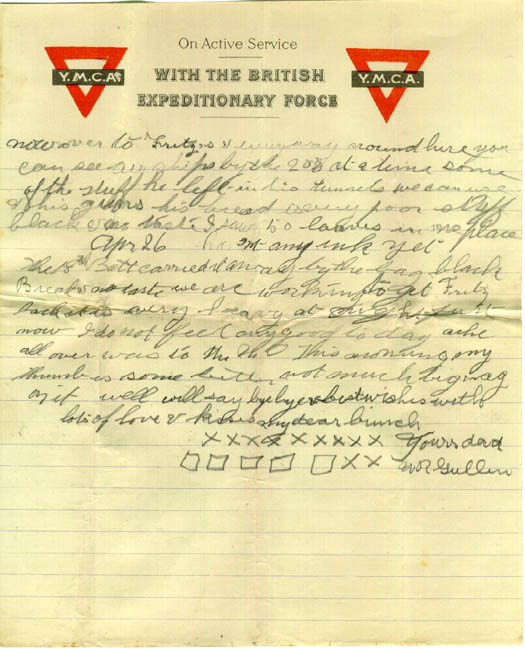 On Active Service
Y.M.C.A. Y.M.C.A.
WITH THE BRITISH
EXPEDITIONARY FORCE
over to Fritzs & every way round here you
can see air ships by the 20s at a time some
of the stuff he left in his tunnels we can use
& his guns his bread is very poor stuff
black I saw 50 loaves in one place
Apr 26 any ink yet
The 8th Batt carried away by the black
Bread no taste we are working to get Fritz
back it is very heavy at
now I do not feel any good to day ache
all over was to the this morning my
thumb is some better not much
on it well will say by by & best wishes with
lots of love & kisses my dear bunch
x x x x x x x x x x Yours dad
x x W R Gullen